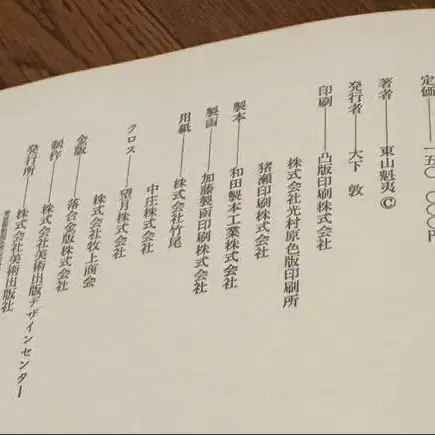 定価――一五〇、〇〇〇円
著者――東山魁夷©
発行者――大下 敦
印刷――凸版印刷株式会社
株式会社光村原色版印刷所
猪瀬印刷株式会社
製本――和田製本工業株式会社
製函――加藤製函印刷株式会社
用紙――株式会社竹尾
中庄株式会社
クロス――望月株式会社
株式会社牧上商会
金版――落合金版株式会社
制作――株式会社美術出版デザインセンター
発行所――株式会社美術出版社